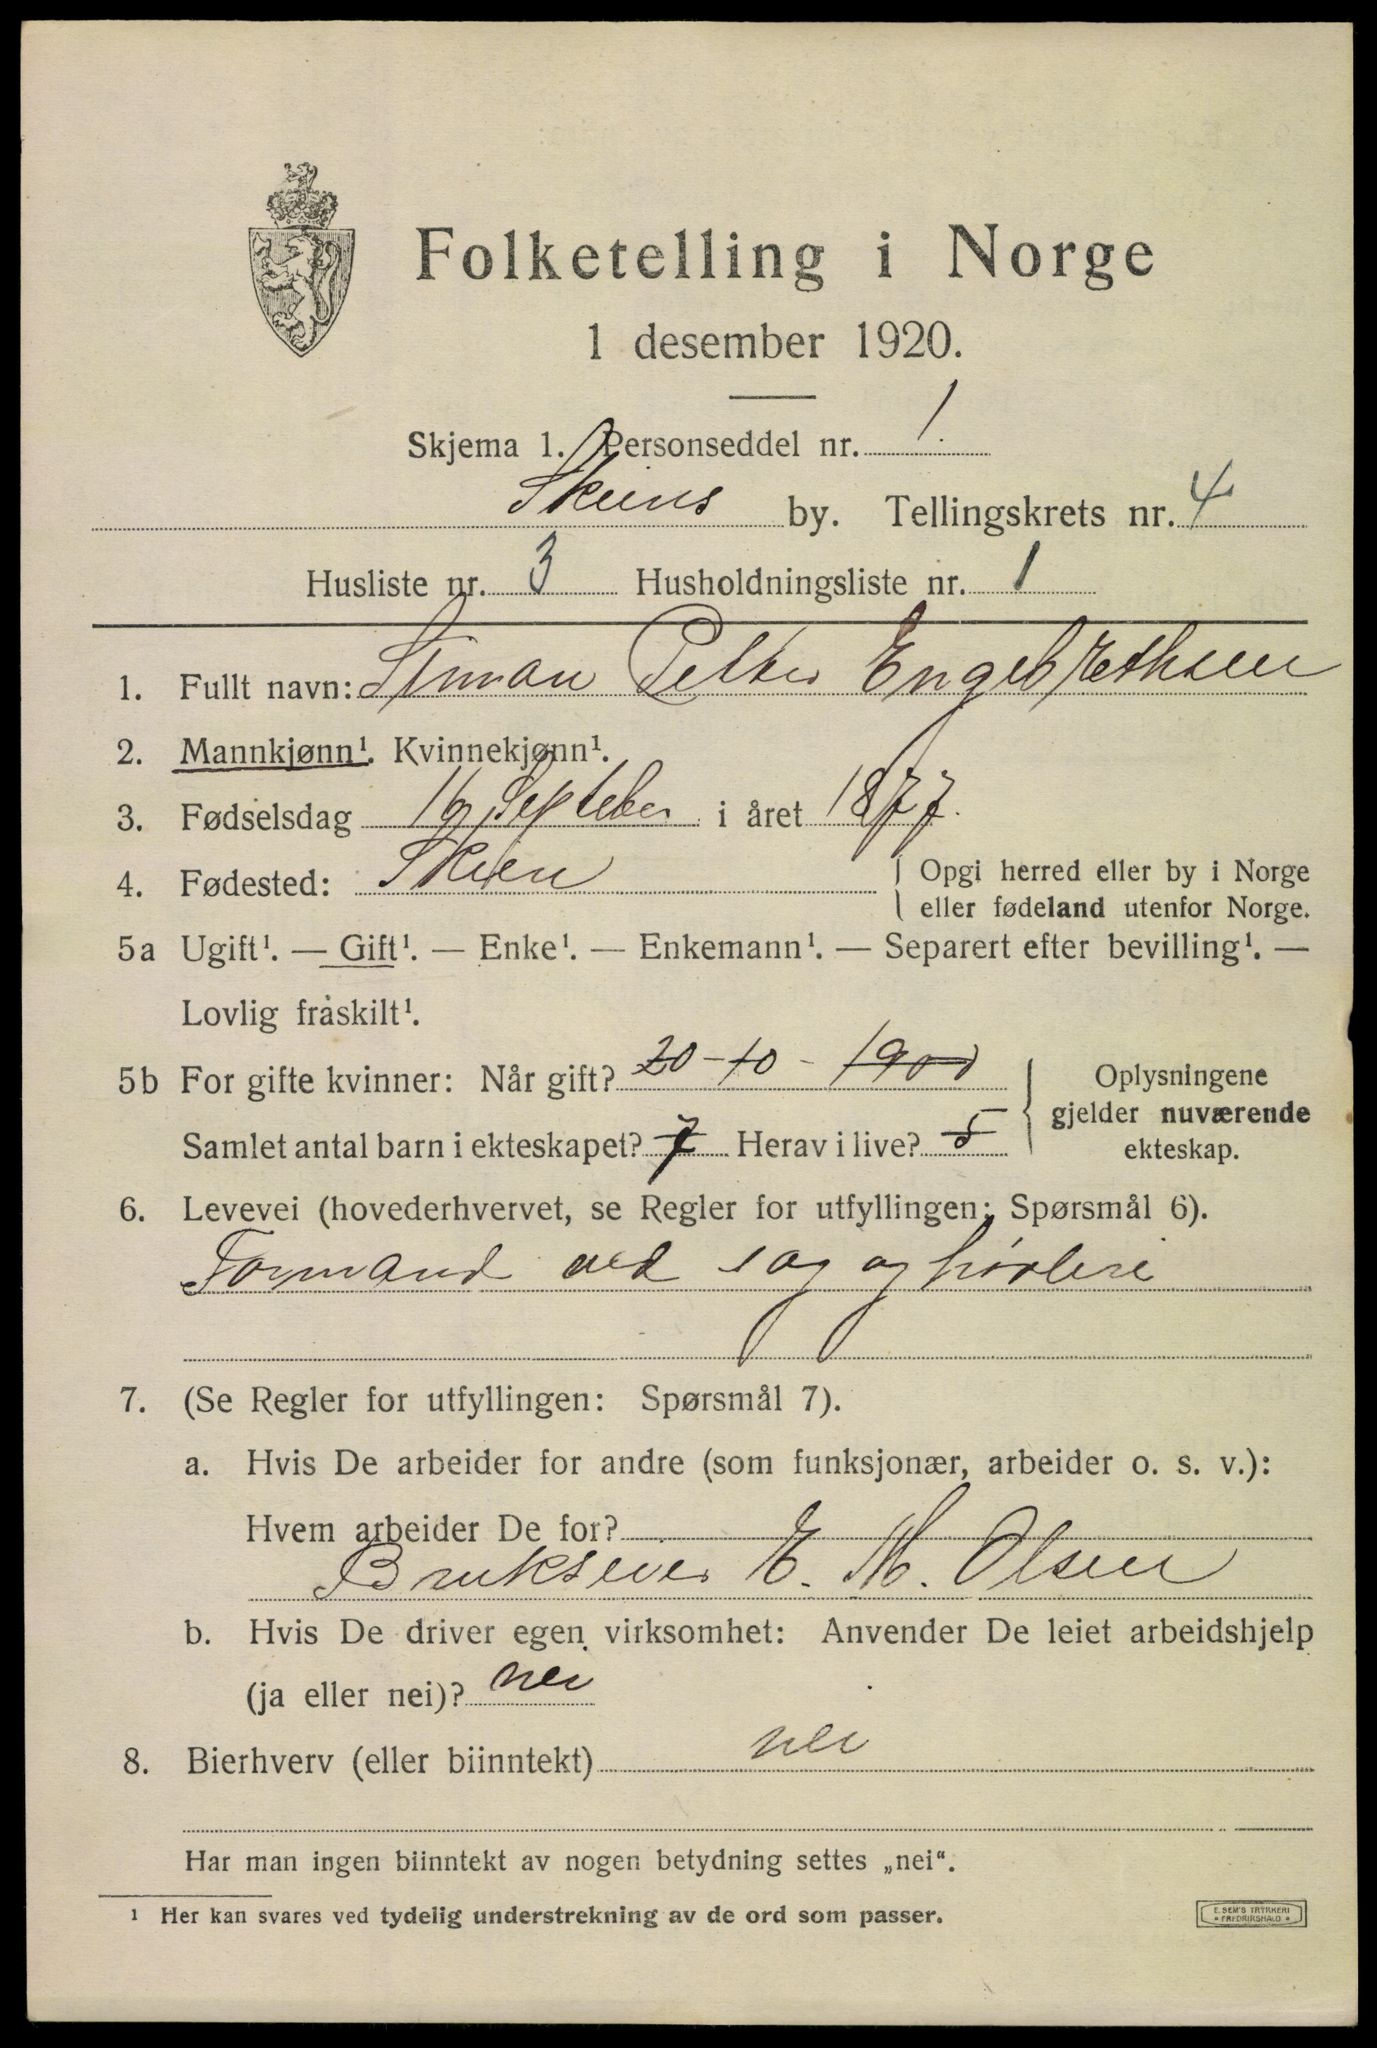 Folketelling i Norge
1 desember 1920.
Skjema 1. Personseddel nr. 1.
Skiens by. Tellingskrets nr. 4
Husliste nr. 3 Husholdningsliste nr. 1
1. Fullt navn: Simon Petter Engebrethsen
2. Mannkjønn¹. Kvinnekjønn¹.
3. Fødselsdag 16 Septeber i året 1877.
4. Fødested: Skien
Opgi herred eller by i Norge
eller fødeland utenfor Norge.
5a Ugift¹. — Gift¹. — Enke¹. — Enkemann¹. — Separert efter bevilling¹. —
Lovlig fraskilt¹.
5b For gifte kvinner: Når gift? 20-10-1900
Samlet antal barn i ekteskapet? 7 Herav i live? 5
Oplysningene
gjelder nuværende
ekteskap.
6. Levevei (hovederhvervet, se Regler for utfyllingen; Spørsmål 6).
Formand ved sag og høvleri
7. (Se Regler for utfyllingen: Spørsmål 7).
a. Hvis De arbeider for andre (som funksjonær, arbeider o. s. v.):
Hvem arbeider De for?
Brukseier E. M. Olsen
b. Hvis De driver egen virksomhet: Anvender De leiet arbeidshjelp
(ja eller nei)? nei
8. Bierhverv (eller biinntekt) nei
Har man ingen biinntekt av nogen betydning settes „nei“.
¹ Her kan svares ved tydelig understrekning av de ord som passer.
E. SEM'S TRYKKERI
FREDRIKSHALD